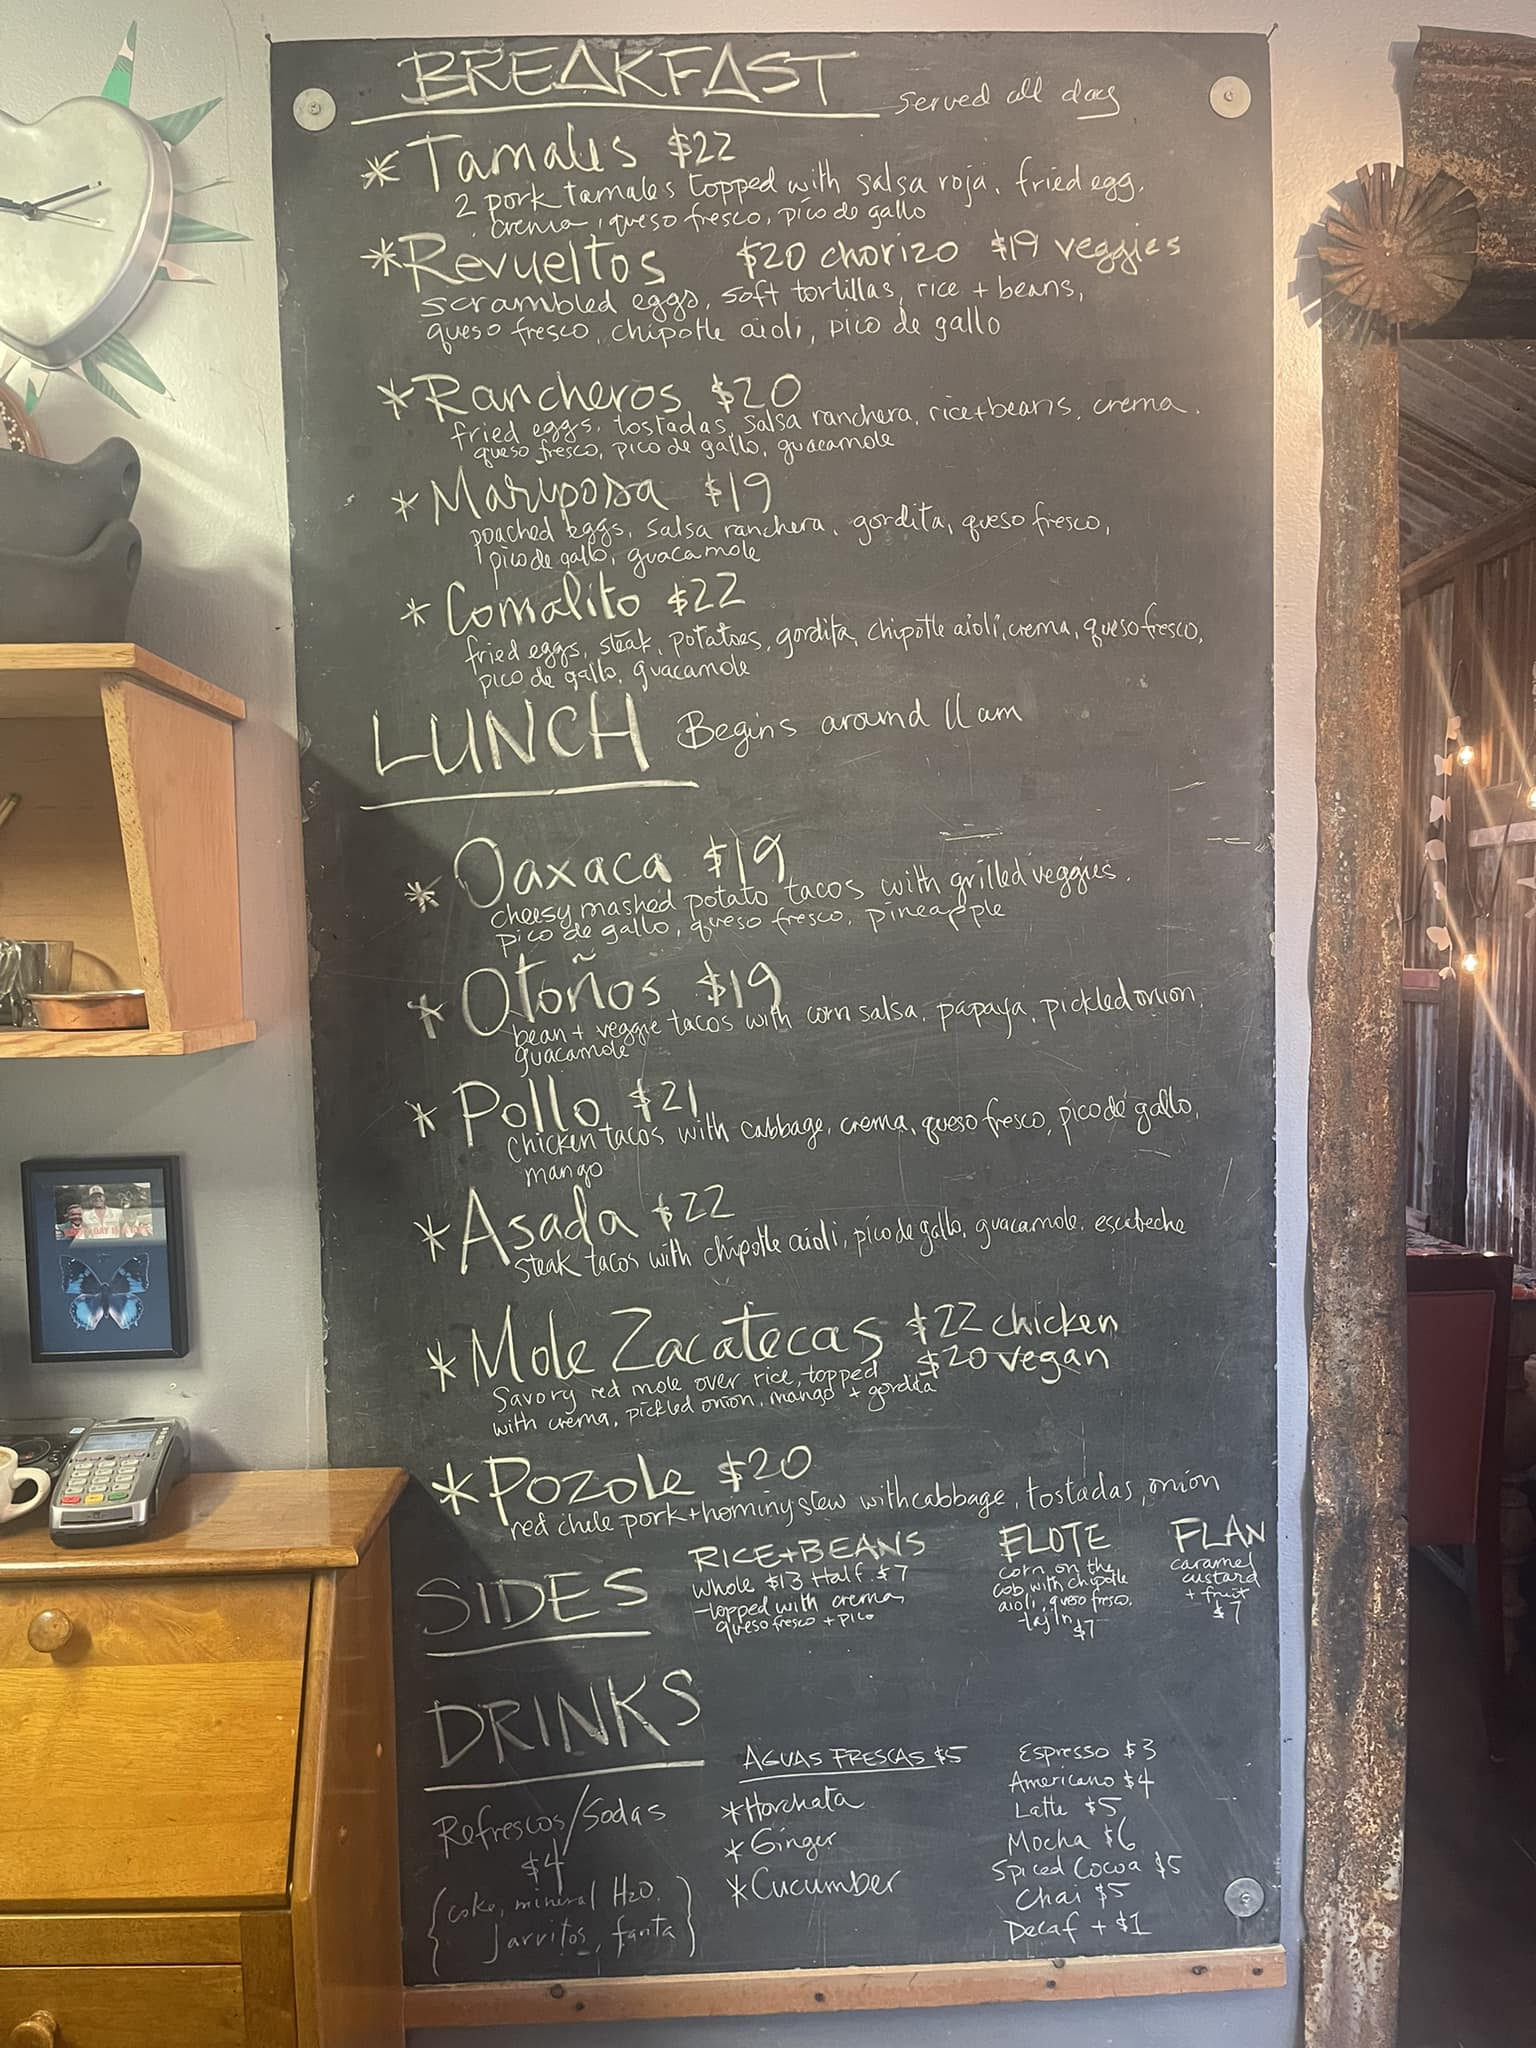 BREAKFAST served all day
* Tamales $22
2 pork tamales topped with salsa roja, fried egg,
crema, queso fresco, pico de gallo
* Revueltos $20 chorizo $19 veggies
scrambled eggs, soft tortillas, rice + beans,
queso fresco, chipotle aioli, pico de gallo
* Rancheros $20
fried eggs, tostadas, salsa ranchera, rice+beans, crema,
queso fresco, pico de gallo, guacamole
* Mariposa $19
poached eggs, salsa ranchera, gordita, queso fresco,
pico de gallo, guacamole
* Comalito $22
fried eggs, steak, potatoes, gordita, chipotle aioli, crema, queso fresco,
pico de gallo, guacamole
LUNCH Begins around 11 am
* Oaxaca $19
cheesy mashed potato tacos with grilled veggies,
pico de gallo, queso fresco, pineapple
* Otoños $19
bean + veggie tacos with corn salsa, papaya, pickled onion,
guacamole
* Pollo $21
chicken tacos with cabbage, crema, queso fresco, pico de gallo,
mango
* Asada $22
steak tacos with chipotle aioli, pico de gallo, guacamole, escabeche
* Mole Zacatecas $22 chicken
$20 vegan
Savory red mole over rice, topped
with crema, pickled onion, mango + gordita
* Pozole $20
red chile pork + hominy stew with cabbage, tostadas, onion
SIDES
RICE+BEANS
whole $13 Half $7
-topped with crema,
queso fresco + pico
ELOTE
corn on the
cob, with chipotle
aioli, queso fresco,
tajin $7
FLAN
caramel
custard
+ fruit
$7
DRINKS
Refrescos/Sodas
$4
{coke, mineral H2O,
Jarritos, fanta}
AGUAS FRESCAS $5
* Horchata
* Ginger
* Cucumber
Espresso $3
Americano $4
Latte $5
Mocha $6
Spiced Cocoa $5
Chai $5
Decaf + $1